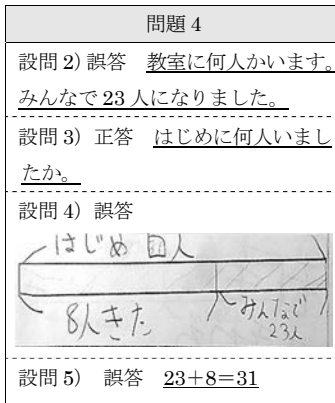 問題 4
設問 2) 誤答　教室に何人かいます。
みんなで 23 人になりました。
設問 3)  正答　はじめに何人いまし
たか。
設問 4)  誤答
はじめ□人
8人きた
みんなで
23人
設問 5)　誤答　23+8=31